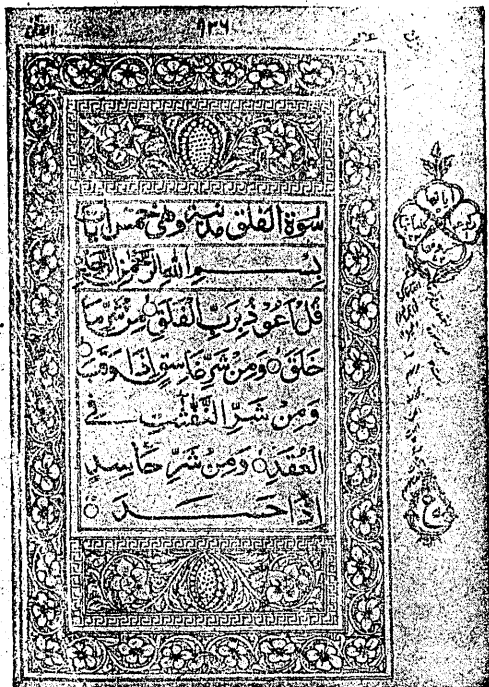 الفلق
٩٣٦
سُوْرَةُ الْفَلَقِ مَدَنِيَّةٌ وَّهِىَ خَمْسُ اٰيَاتٍ
بِسْمِ اللّٰهِ الرَّحْمٰنِ الرَّحِيْمِ
قُلْ اَعُوْذُ بِرَبِّ الْفَلَقِ ○ مِنْ شَرِّ مَا
خَلَقَ ○ وَمِنْ شَرِّ غَاسِقٍ اِذَا وَقَبَ ○
وَمِنْ شَرِّ النَّفّٰثٰتِ فِى
الْعُقَدِ ○ وَمِنْ شَرِّ حَاسِدٍ
اِذَا حَسَدَ ○